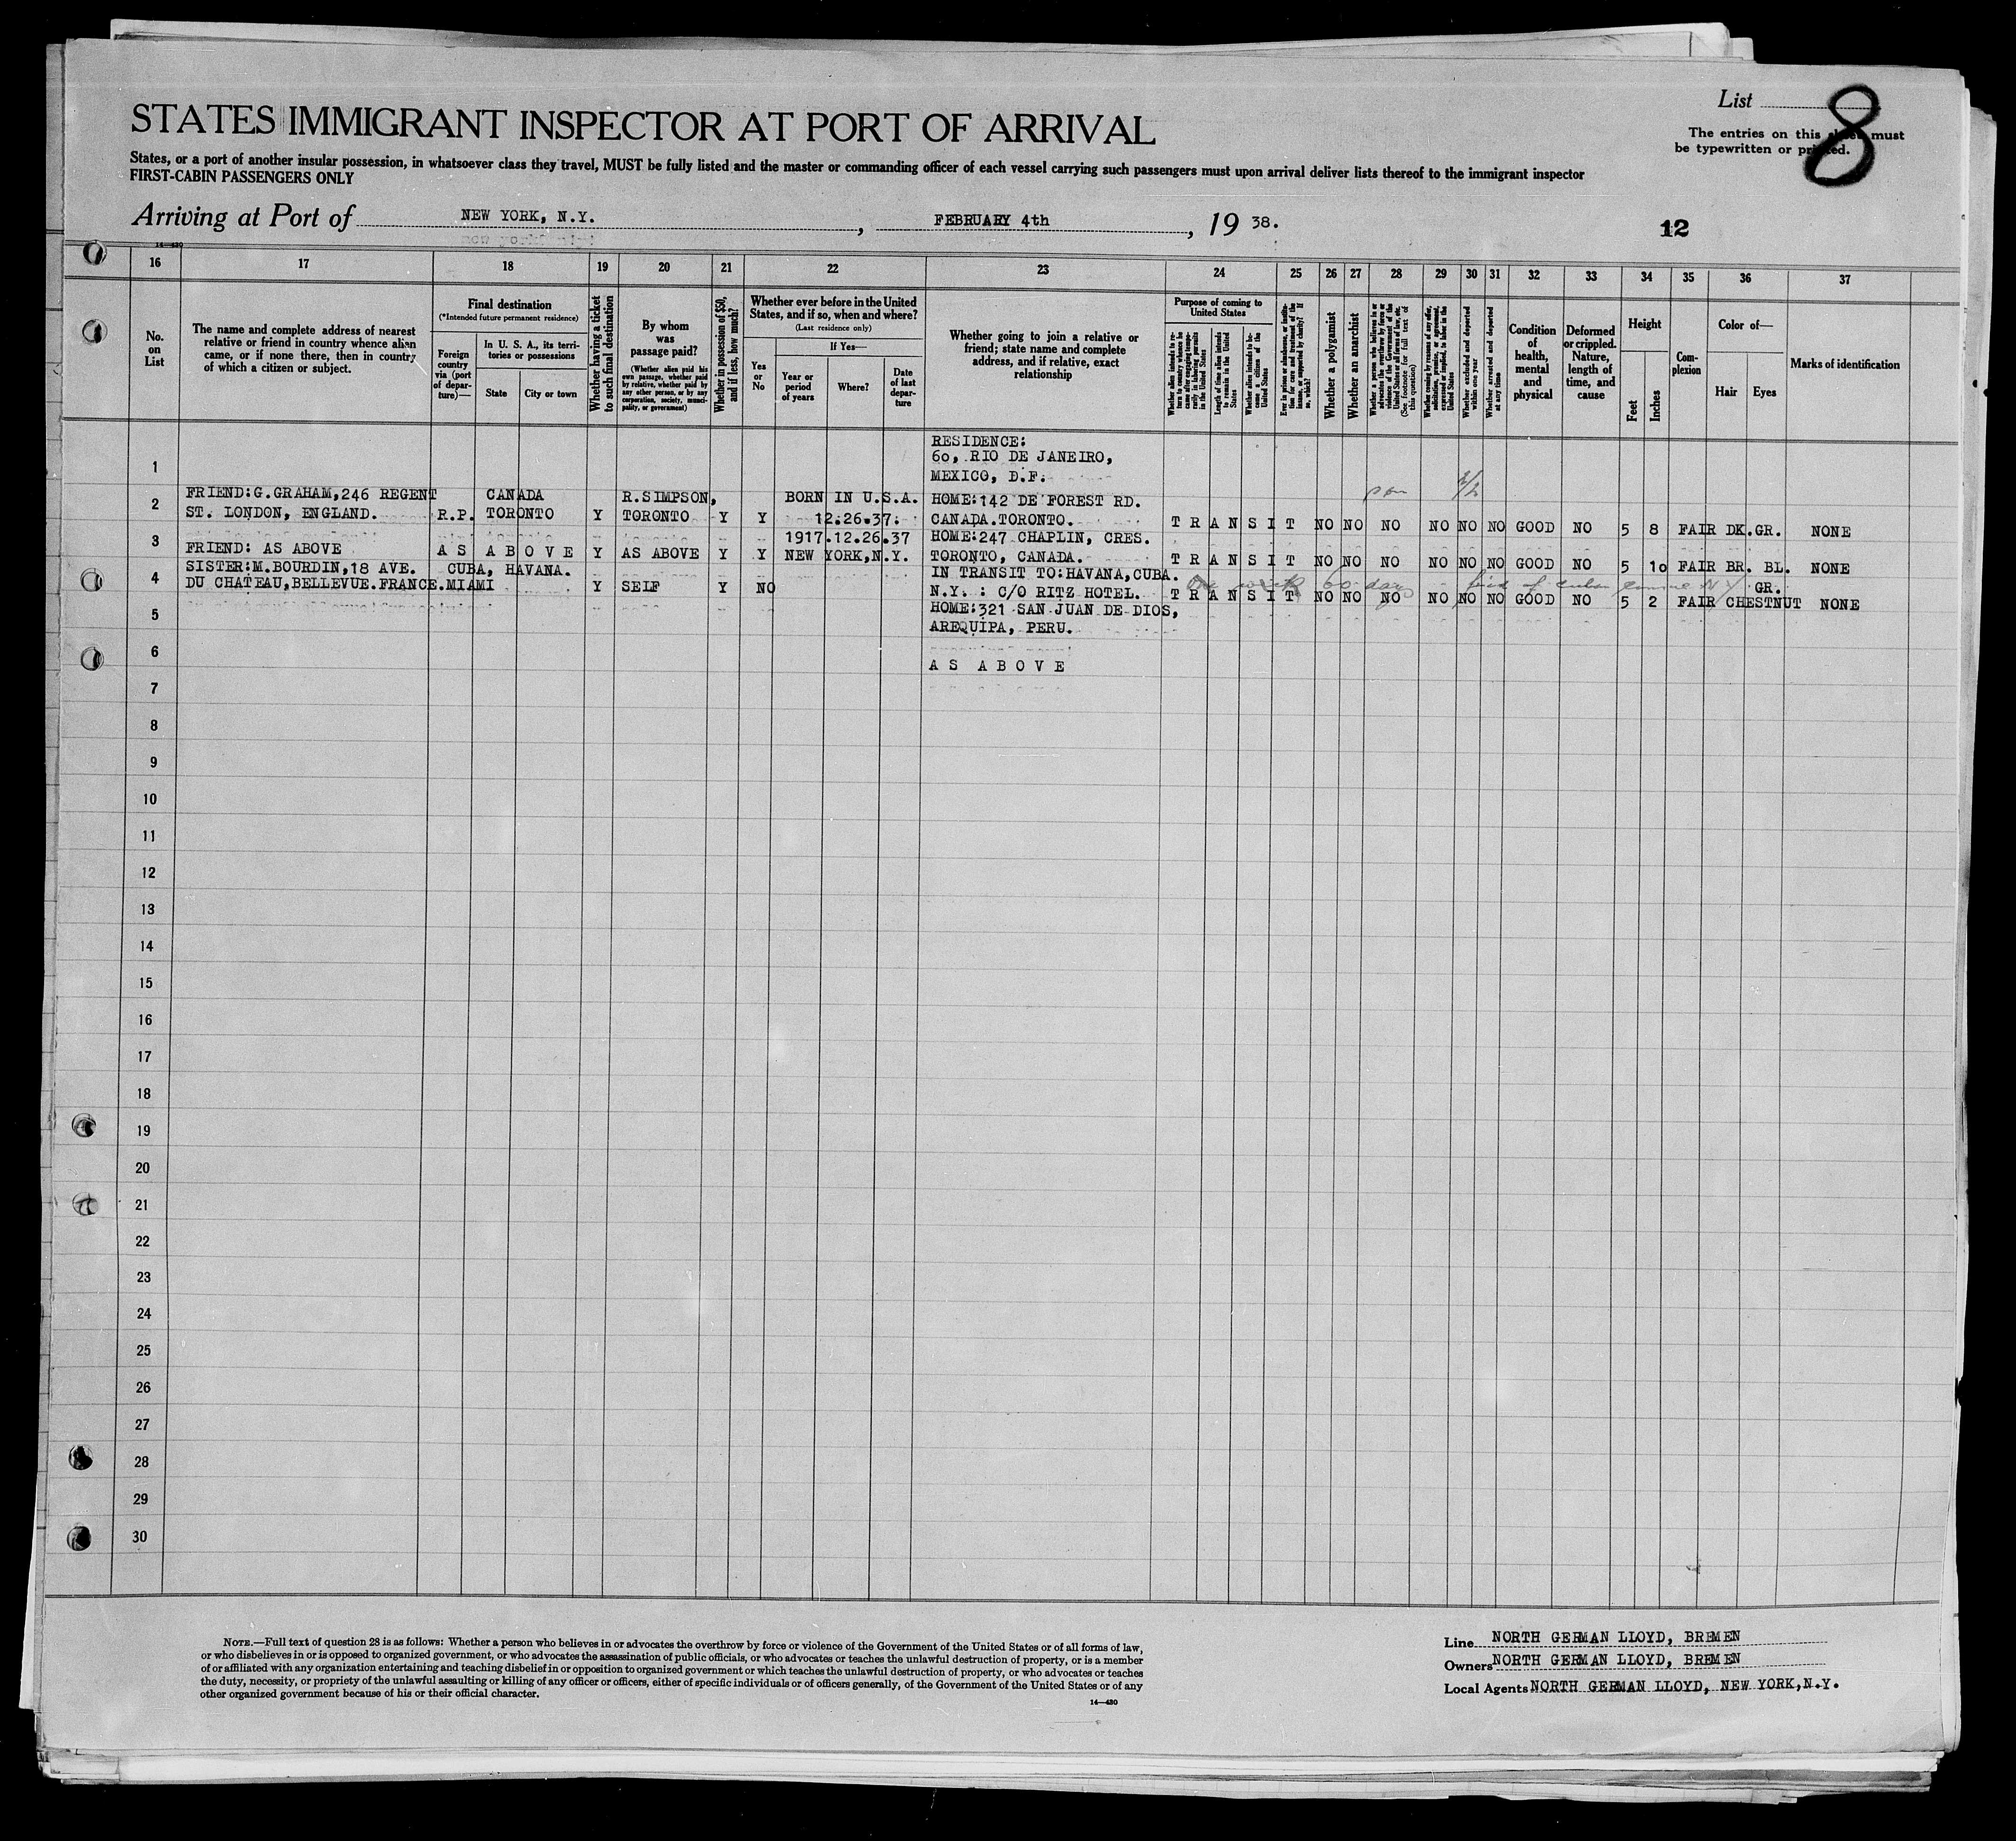 List 8
STATES IMMIGRANT INSPECTOR AT PORT OF ARRIVAL
The entries on this sheet must
be typewritten or printed.
States, or a port of another insular possession, in whatsoever class they travel, MUST be fully listed and the master or commanding officer of each vessel carrying such passengers must upon arrival deliver lists thereof to the immigrant inspector
FIRST-CABIN PASSENGERS ONLY
Arriving at Port of NEW YORK, N.Y. , FEBRUARY 4th , 19 38.
12
14—430
16 17 18 19 20 21 22 23 24 25 26 27 28 29 30 31 32 33 34 35 36 37
No. on List
The name and complete address of nearest relative or friend in country whence alien came, or if none there, then in country of which a citizen or subject.
Final destination
(*Intended future permanent residence)
Foreign country via (port of departure)—
In U. S. A., its territories or possessions
State
City or town
Whether having a ticket to such final destination
By whom was passage paid?
(Whether alien paid his own passage, whether paid by relative, whether paid by any other person, or by any corporation, society, municipality, or government)
Whether in possession of $50, and if less, how much?
Whether ever before in the United States, and if so, when and where?
(Last residence only)
Yes or No
If Yes—
Year or period of years
Where?
Date of last departure
Whether going to join a relative or friend; state name and complete address, and if relative, exact relationship
Purpose of coming to United States
Whether alien intends to return to country whence he came after engaging temporarily in laboring pursuits in the United States
Length of time alien intends to remain in the United States
Whether alien intends to become a citizen of the United States
Ever in prison or almshouse, or institution for care and treatment of the insane, or supported by charity? If so, which?
Whether a polygamist
Whether an anarchist
Whether a person who believes in or advocates the overthrow by force or violence of the Government of the United States or all forms of law, etc. (See footnote for full text of this question)
Whether coming by reason of any offer, solicitation, promise, or agreement, expressed or implied, to labor in the United States
Whether excluded and deported within one year
Whether arrested and deported at any time
Condition of health, mental and physical
Deformed or crippled. Nature, length of time, and cause
Height
Feet
Inches
Complexion
Color of—
Hair
Eyes
Marks of identification
RESIDENCE:
60, RIO DE JANEIRO,
1
MEXICO, D.F.
2 FRIEND:G.GRAHAM,246 REGENT CANADA R.SIMPSON, BORN IN U.S.A. HOME:142 DE FOREST RD.
ST. LONDON, ENGLAND. R.P. TORONTO Y TORONTO Y Y 12.26.37. CANADA.TORONTO. TRANSIT NO NO NO NO NO NO GOOD NO 5 8 FAIR DK.GR. NONE
1917.12.26.37 HOME:247 CHAPLIN, CRES.
3 FRIEND: AS ABOVE AS ABOVE Y AS ABOVE Y Y NEW YORK,N.Y. TORONTO, CANADA. TRANSIT NO NO NO NO NO NO GOOD NO 5 10 FAIR BR. BL. NONE
SISTER:M.BOURDIN,18 AVE. CUBA, HAVANA. IN TRANSIT TO:HAVANA,CUBA.
4 DU CHATEAU,BELLEVUE.FRANCE.MIAMI Y SELF Y NO N.Y. : C/O RITZ HOTEL. TRANSIT NO NO NO NO NO NO GOOD NO 5 2 FAIR CHESTNUT GR. NONE
60 days
HOME:321 SAN JUAN DE DIOS,
5
AREQUIPA, PERU.
6
AS ABOVE
7
8
9
10
11
12
13
14
15
16
17
18
19
20
21
22
23
24
25
26
27
28
29
30
NOTE.—Full text of question 28 is as follows: Whether a person who believes in or advocates the overthrow by force or violence of the Government of the United States or of all forms of law,
or who disbelieves in or is opposed to organized government, or who advocates the assassination of public officials, or who advocates or teaches the unlawful destruction of property, or is a member
of or affiliated with any organization entertaining and teaching disbelief in or opposition to organized government or which teaches the unlawful destruction of property, or who advocates or teaches
the duty, necessity, or propriety of the unlawful assaulting or killing of any officer or officers, either of specific individuals or of officers generally, of the Government of the United States or of any
other organized government because of his or their official character.
14—430
Line NORTH GERMAN LLOYD, BREMEN
Owners NORTH GERMAN LLOYD, BREMEN
Local Agents NORTH GERMAN LLOYD, NEW YORK,N.Y.